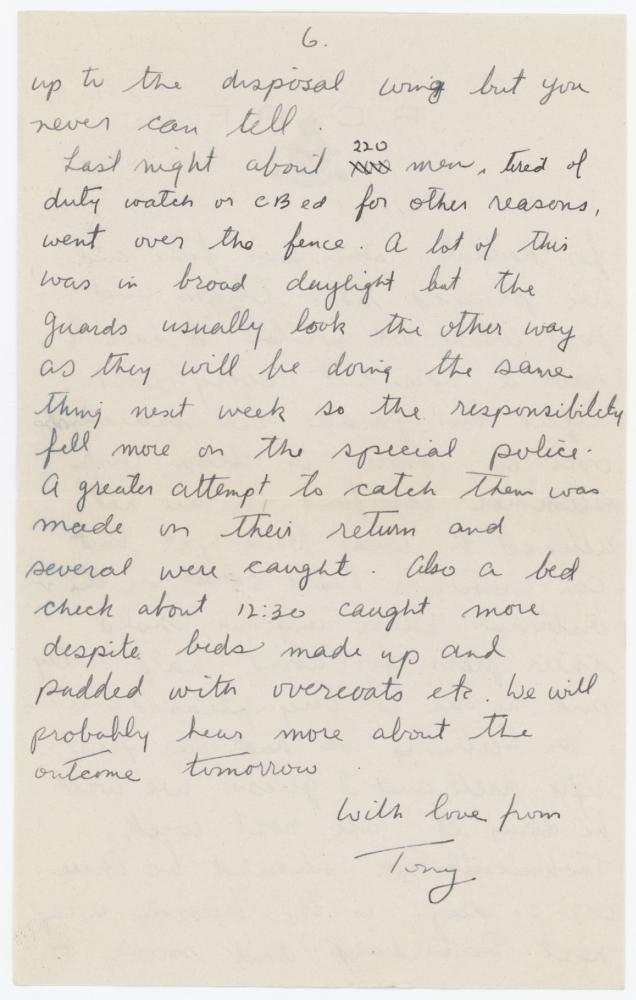 6.
up to the disposal wing but you
never can tell.
Last night about 220 men, tired of
duty watch or CBed for other reasons,
went over the fence. A lot of this
was in broad daylight but the
guards usually look the other way
as they will be doing the same
thing next week so the responsibility
fell more on the special police.
A greater attempt to catch them was
made on their return and
several were caught. Also a bed
check about 12:30 caught more
despite beds made up and
padded with overcoats etc. We will
probably hear more about the
outcome tomorrow.
With love from
Tony